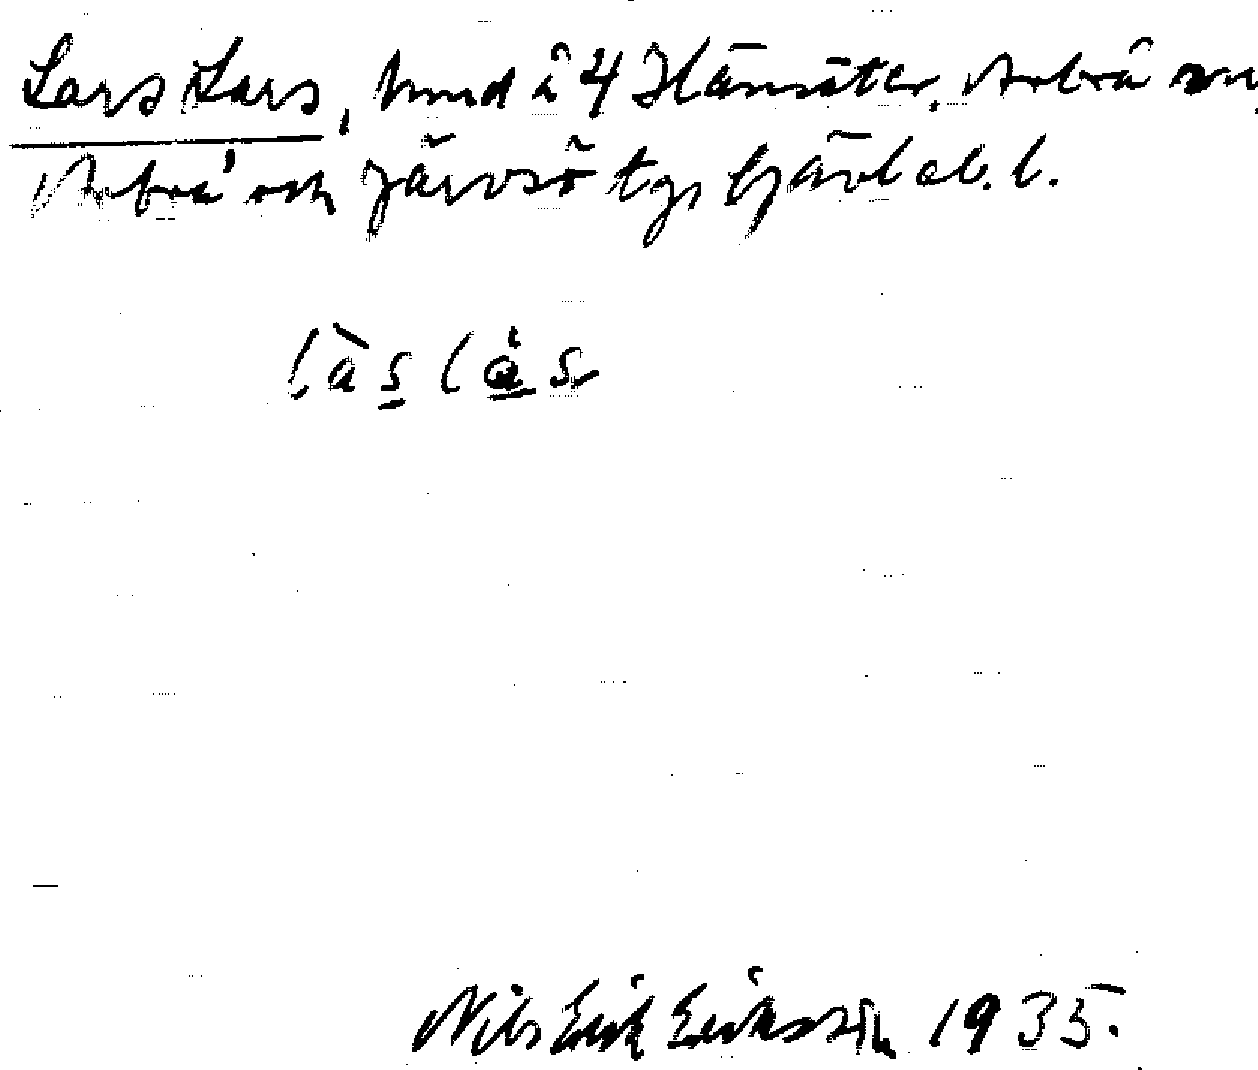 Lars Lars, hmd å 4 Hänsäter, Arbrå sn,
Arbrå och Järvsö tg, Gävleb. l.
làs lás
Nils Erik Eriksson 1935.